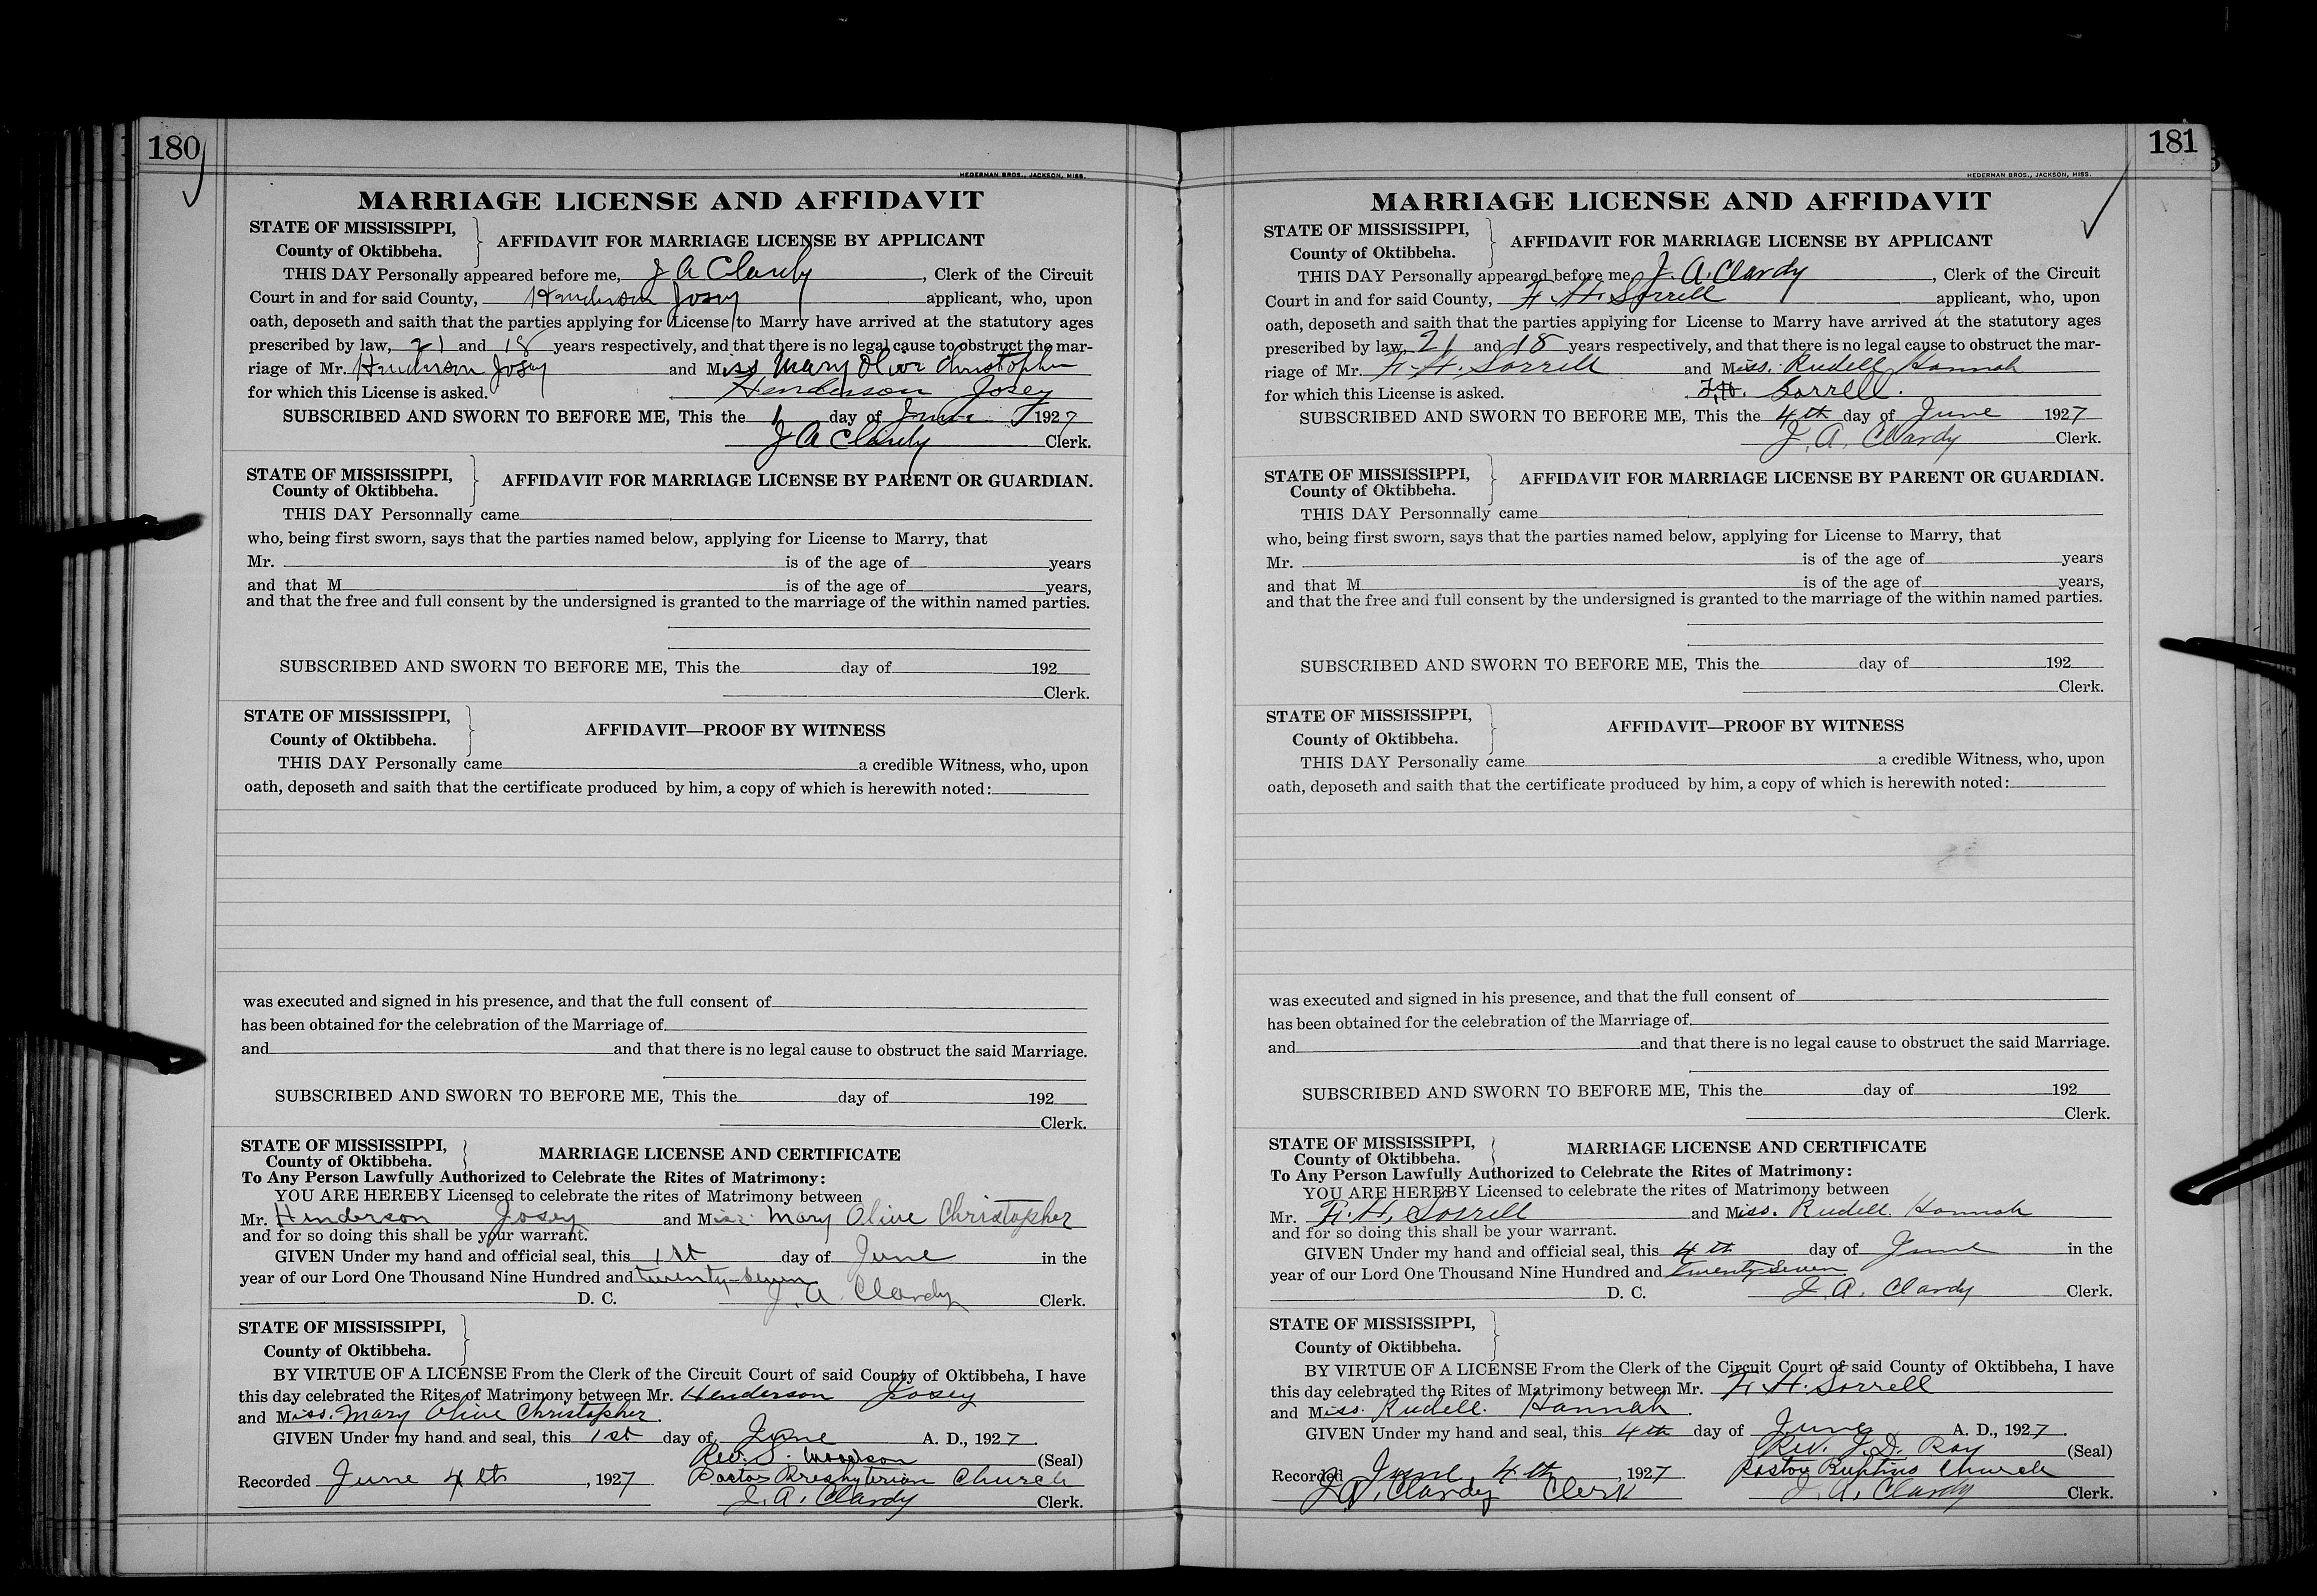 180
HEDERMAN BROS., JACKSON, MISS.
MARRIAGE LICENSE AND AFFIDAVIT
STATE OF MISSISSIPPI,
County of Oktibbeha.
AFFIDAVIT FOR MARRIAGE LICENSE BY APPLICANT
THIS DAY Personally appeared before me, J A Clardy, Clerk of the Circuit
Court in and for said County, Henderson Josey applicant, who, upon
oath, deposeth and saith that the parties applying for License to Marry have arrived at the statutory ages
prescribed by law, 21 and 18 years respectively, and that there is no legal cause to obstruct the mar-
riage of Mr. Henderson Josey and Miss Mary Olive Christopher
for which this License is asked. Henderson Josey
SUBSCRIBED AND SWORN TO BEFORE ME, This the 1 day of June 1927
J A Clardy Clerk.
STATE OF MISSISSIPPI,
County of Oktibbeha.
AFFIDAVIT FOR MARRIAGE LICENSE BY PARENT OR GUARDIAN.
THIS DAY Personnally came
who, being first sworn, says that the parties named below, applying for License to Marry, that
Mr. is of the age of years
and that M is of the age of years,
and that the free and full consent by the undersigned is granted to the marriage of the within named parties.
SUBSCRIBED AND SWORN TO BEFORE ME, This the day of 192
Clerk.
STATE OF MISSISSIPPI,
County of Oktibbeha.
AFFIDAVIT—PROOF BY WITNESS
THIS DAY Personally came a credible Witness, who, upon
oath, deposeth and saith that the certificate produced by him, a copy of which is herewith noted:
was executed and signed in his presence, and that the full consent of
has been obtained for the celebration of the Marriage of
and and that there is no legal cause to obstruct the said Marriage.
SUBSCRIBED AND SWORN TO BEFORE ME, This the day of 192
Clerk.
STATE OF MISSISSIPPI,
County of Oktibbeha.
MARRIAGE LICENSE AND CERTIFICATE
To Any Person Lawfully Authorized to Celebrate the Rites of Matrimony:
YOU ARE HEREBY Licensed to celebrate the rites of Matrimony between
Mr. Henderson Josey and Miss. Mary Olive Christopher
and for so doing this shall be your warrant.
GIVEN Under my hand and official seal, this 1st day of June in the
year of our Lord One Thousand Nine Hundred and twenty-seven
D. C. J. A. Clardy Clerk.
STATE OF MISSISSIPPI,
County of Oktibbeha.
BY VIRTUE OF A LICENSE From the Clerk of the Circuit Court of said County of Oktibbeha, I have
this day celebrated the Rites of Matrimony between Mr. Henderson Josey
and Miss. Mary Olive Christopher.
GIVEN Under my hand and seal, this 1st day of June A. D., 1927.
Rev. S. Woodson (Seal)
Recorded June 4th, 1927 Pastor Presbyterian Church
J. A. Clardy Clerk.
181
HEDERMAN BROS., JACKSON, MISS.
MARRIAGE LICENSE AND AFFIDAVIT
STATE OF MISSISSIPPI,
County of Oktibbeha.
AFFIDAVIT FOR MARRIAGE LICENSE BY APPLICANT
THIS DAY Personally appeared before me J. A. Clardy, Clerk of the Circuit
Court in and for said County, F. H. Sorrell applicant, who, upon
oath, deposeth and saith that the parties applying for License to Marry have arrived at the statutory ages
prescribed by law, 21 and 18 years respectively, and that there is no legal cause to obstruct the mar-
riage of Mr. F. H. Sorrell and Miss. Rudell Hannah
for which this License is asked. F. H. Sorrell.
SUBSCRIBED AND SWORN TO BEFORE ME, This the 4th day of June 1927
J. A. Clardy Clerk.
STATE OF MISSISSIPPI,
County of Oktibbeha.
AFFIDAVIT FOR MARRIAGE LICENSE BY PARENT OR GUARDIAN.
THIS DAY Personnally came
who, being first sworn, says that the parties named below, applying for License to Marry, that
Mr. is of the age of years
and that M is of the age of years,
and that the free and full consent by the undersigned is granted to the marriage of the within named parties.
SUBSCRIBED AND SWORN TO BEFORE ME, This the day of 192
Clerk.
STATE OF MISSISSIPPI,
County of Oktibbeha.
AFFIDAVIT—PROOF BY WITNESS
THIS DAY Personally came a credible Witness, who, upon
oath, deposeth and saith that the certificate produced by him, a copy of which is herewith noted:
was executed and signed in his presence, and that the full consent of
has been obtained for the celebration of the Marriage of
and and that there is no legal cause to obstruct the said Marriage.
SUBSCRIBED AND SWORN TO BEFORE ME, This the day of 192
Clerk.
STATE OF MISSISSIPPI,
County of Oktibbeha.
MARRIAGE LICENSE AND CERTIFICATE
To Any Person Lawfully Authorized to Celebrate the Rites of Matrimony:
YOU ARE HEREBY Licensed to celebrate the rites of Matrimony between
Mr. F. H. Sorrell and Miss. Rudell. Hannah
and for so doing this shall be your warrant.
GIVEN Under my hand and official seal, this 4th day of June in the
year of our Lord One Thousand Nine Hundred and twenty-seven
D. C. J. A. Clardy Clerk.
STATE OF MISSISSIPPI,
County of Oktibbeha.
BY VIRTUE OF A LICENSE From the Clerk of the Circuit Court of said County of Oktibbeha, I have
this day celebrated the Rites of Matrimony between Mr. F. H. Sorrell
and Miss. Rudell. Hannah.
GIVEN Under my hand and seal, this 4th day of June A. D., 1927.
Rev. J. D. Ray (Seal)
Recorded June 4th, 1927 Pastor Baptist Church
J. A. Clardy Clerk J. A. Clardy Clerk.